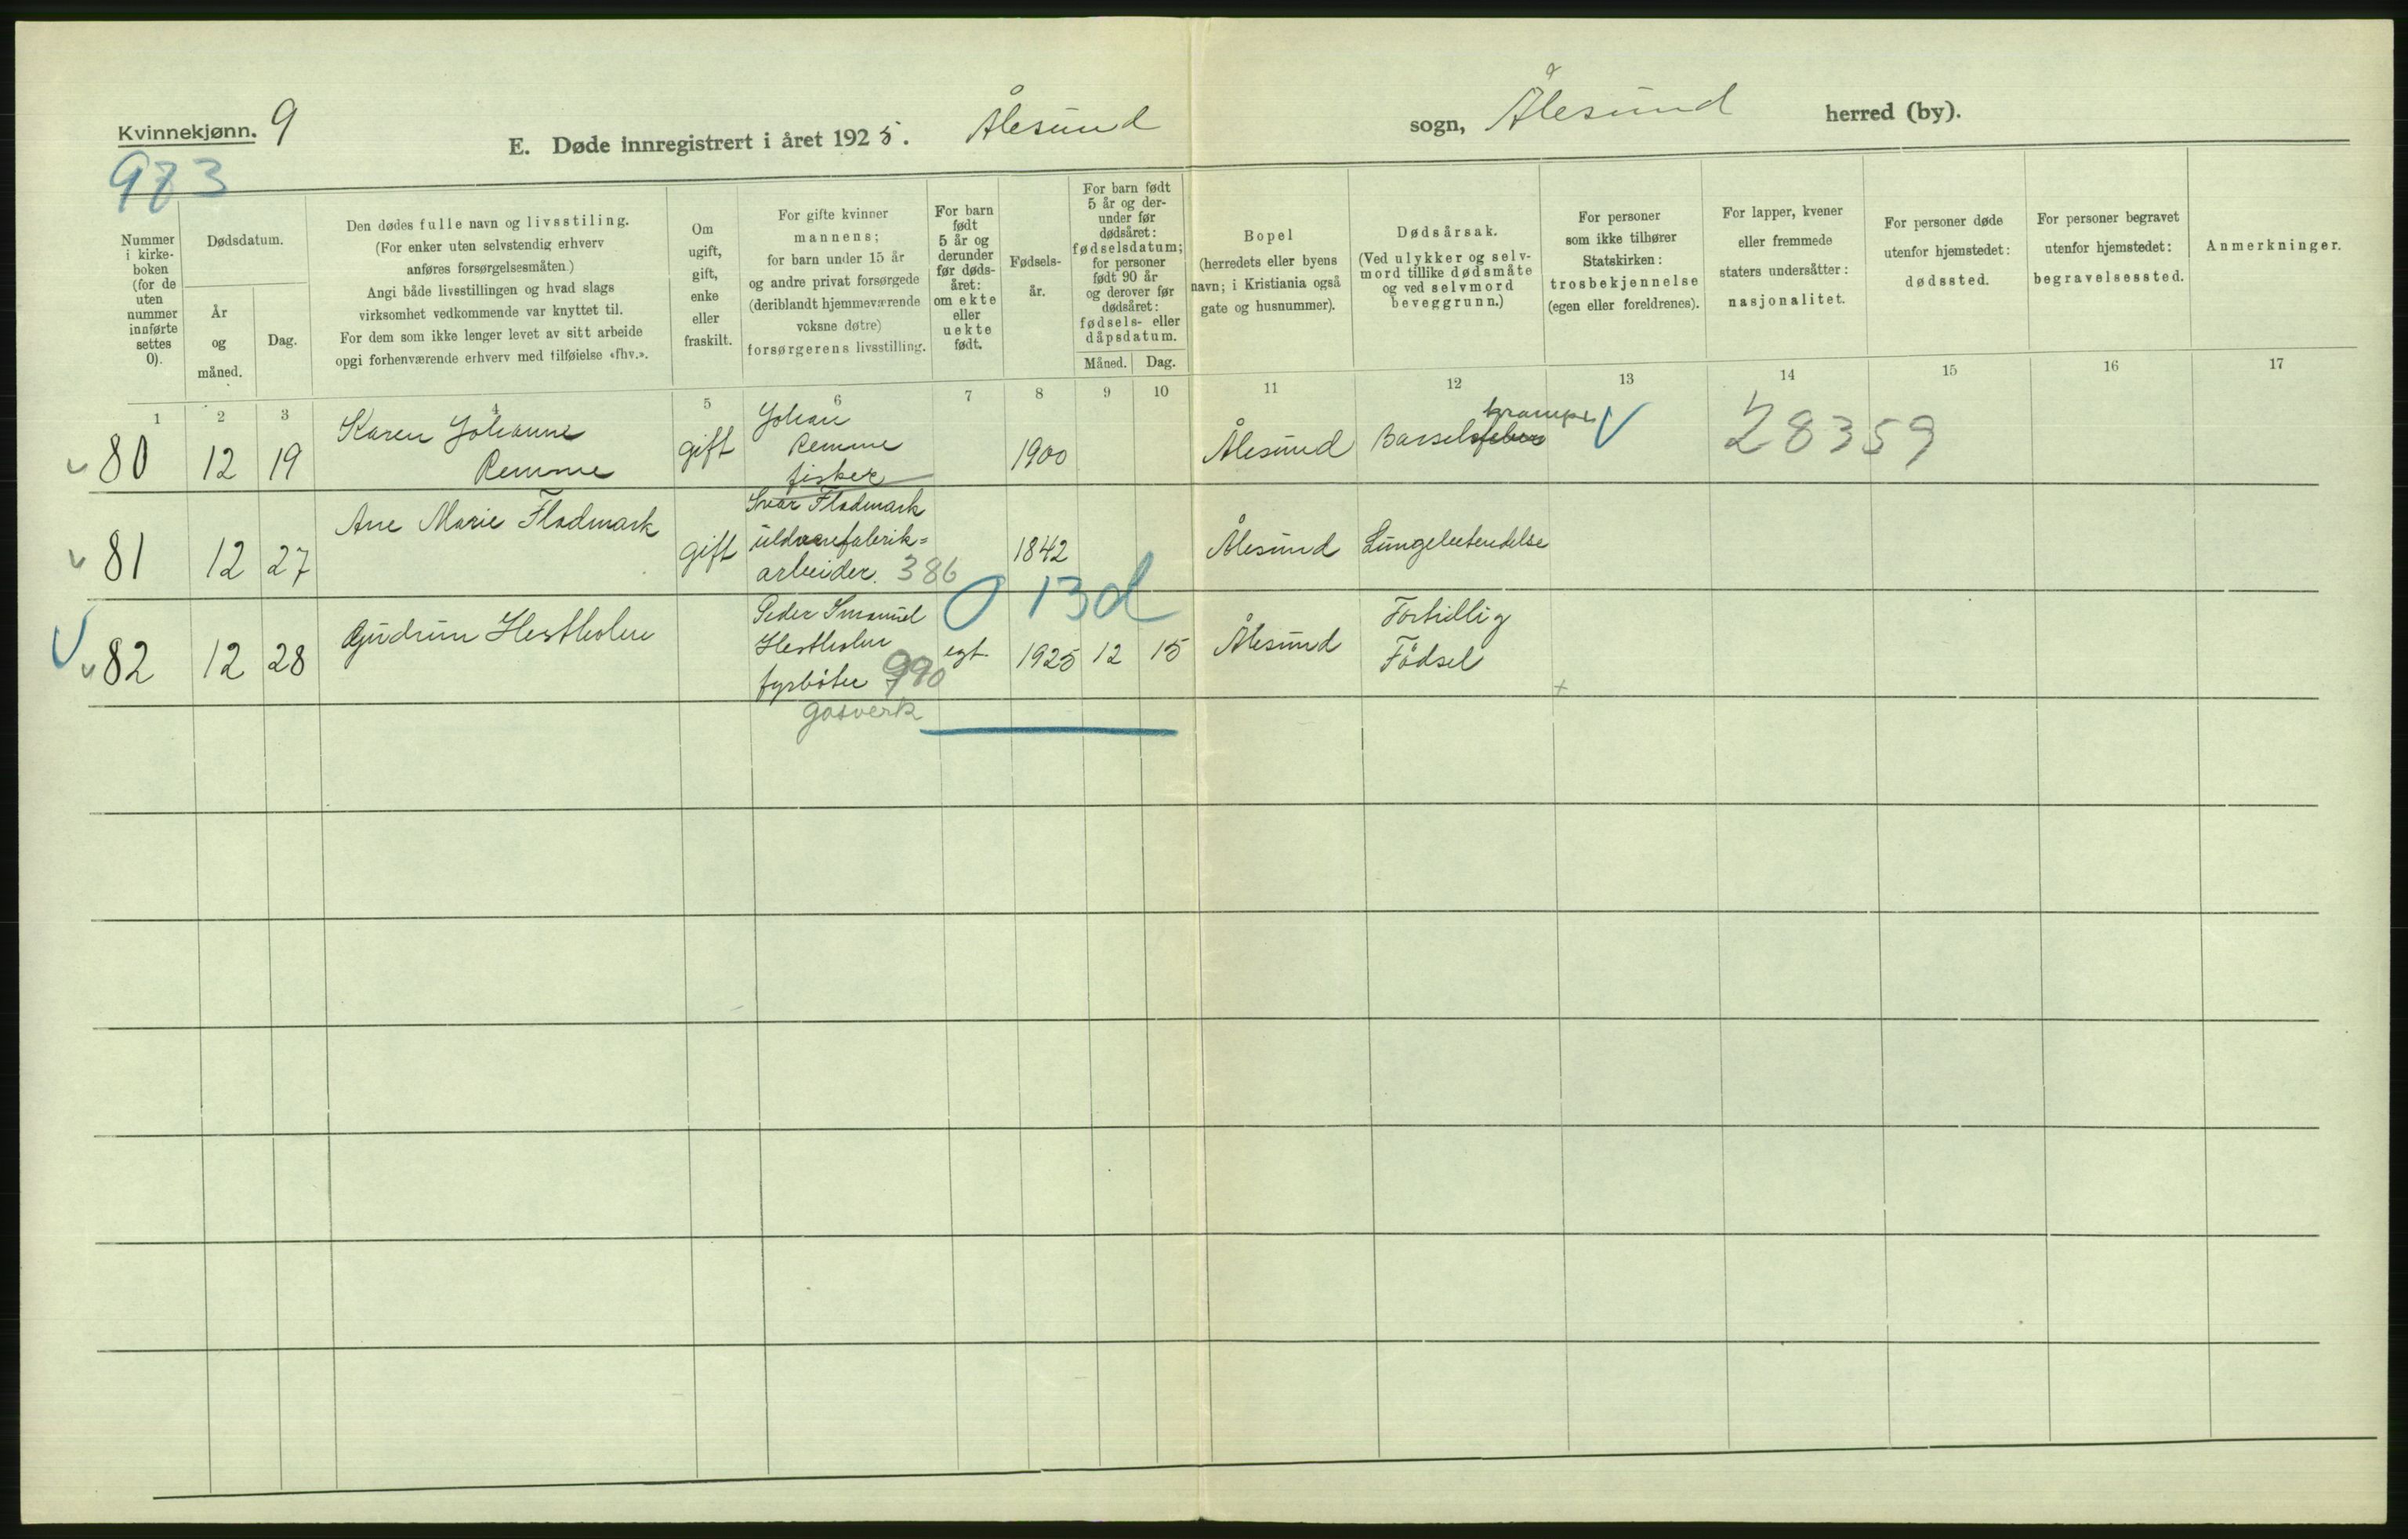 Kvinnekjønn. 9
983
E. Døde innregistrert i året 1925. Ålesund sogn, Ålesund herred (by).
Nummer
i kirke-
boken
(for de
uten
nummer
innførte
settes
0).
Dødsdatum.
År
og
måned.
Dag.
Den dødes fulle navn og livsstiling.
(For enker uten selvstendig erhverv
anføres forsørgelsesmåten)
Angi både livsstillingen og hvad slags
virksomhet vedkommende var knyttet til.
For dem som ikke lenger levet av sitt arbeide
opgi forhenværende erhverv med tilføielse «fhv.».
Om
ugift,
gift,
enke
eller
fraskilt.
For gifte kvinner
mannens;
for barn under 15 år
og andre privat forsørgede
(deriblandt hjemmeværende
voksne døtre)
forsørgerens livsstilling.
For barn
født
5 år og
derunder
før døds-
året:
om ekte
eller
uekte
født.
Fødsels-
år.
For barn født
5 år og der-
under før
dødsåret:
fødselsdatum;
for personer
født 90 år
og derover før
dødsåret:
fødsels- eller
dåpsdatum.
Måned. Dag.
Bopel
(herredets eller byens
navn; i Kristiania også
gate og husnummer).
Dødsårsak.
(Ved ulykker og selv-
mord tillike dødsmåte
og ved selvmord
beveggrunn.)
For personer
som ikke tilhører
Statskirken:
trosbekjennelse
(egen eller foreldrenes).
For lapper, kvener
eller fremmede
staters undersåtter:
nasjonalitet.
For personer døde
utenfor hjemstedet:
dødssted.
For personer begravet
utenfor hjemstedet:
begravelsessted.
Anmerkninger.
1 2 3 4 5 6 7 8 9 10 11 12 13 14 15 16 17
80 12 19
Karen Johanne
Remme
gift
Johan
Remme
fisker
1900
Ålesund
krampe
Barselsfeber
V
28359
81 12 27
Ane Marie Fladmark
gift
Ivar Fladmark
uldvarefabrik=
arbeider. 386
1842
Ålesund
Lungebetendelse
0 13d
82 12 28
Gudrun Hestholm
Peder Emanuel
Hestholm
fyrbøter 990
gasverk
egt.
1925 12 15
Ålesund
Fortidlig
Fødsel
+